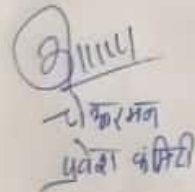 चेयरमैन
प्रवेश कमिटी